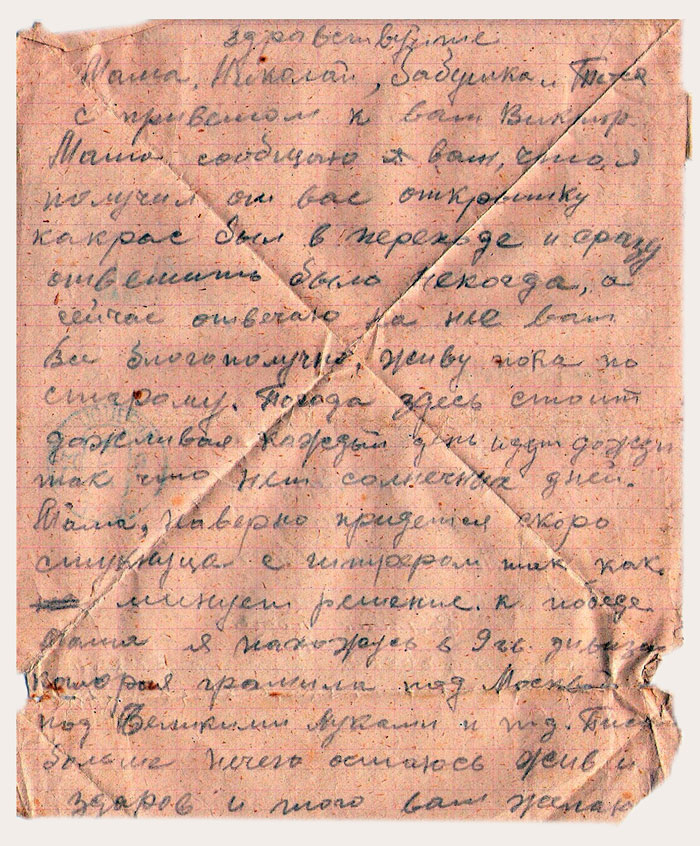 здравствуйте
Мама, Николай, бабушка и Тося
с приветом к вам Виктор.
Мама, сообщаю вам, что я
получил от вас открытку
какрас был в переходе и сразу
ответить было некогда, а
сейчас отвечаю на нее вам
Все благополучно, живу пока по
старому. Погода здесь стоит
дожливая каждый день идут дожди
так что нет солнечных дней.
Мама, наверно придется скоро
стукнуца с гитлером так как
решение к победе
Мама я нахожусь в 9 гв. дивизи
которая громила под Москвой
под Великими Луками и под
больше нечего остаюсь жив и
здаров и того вам желаю